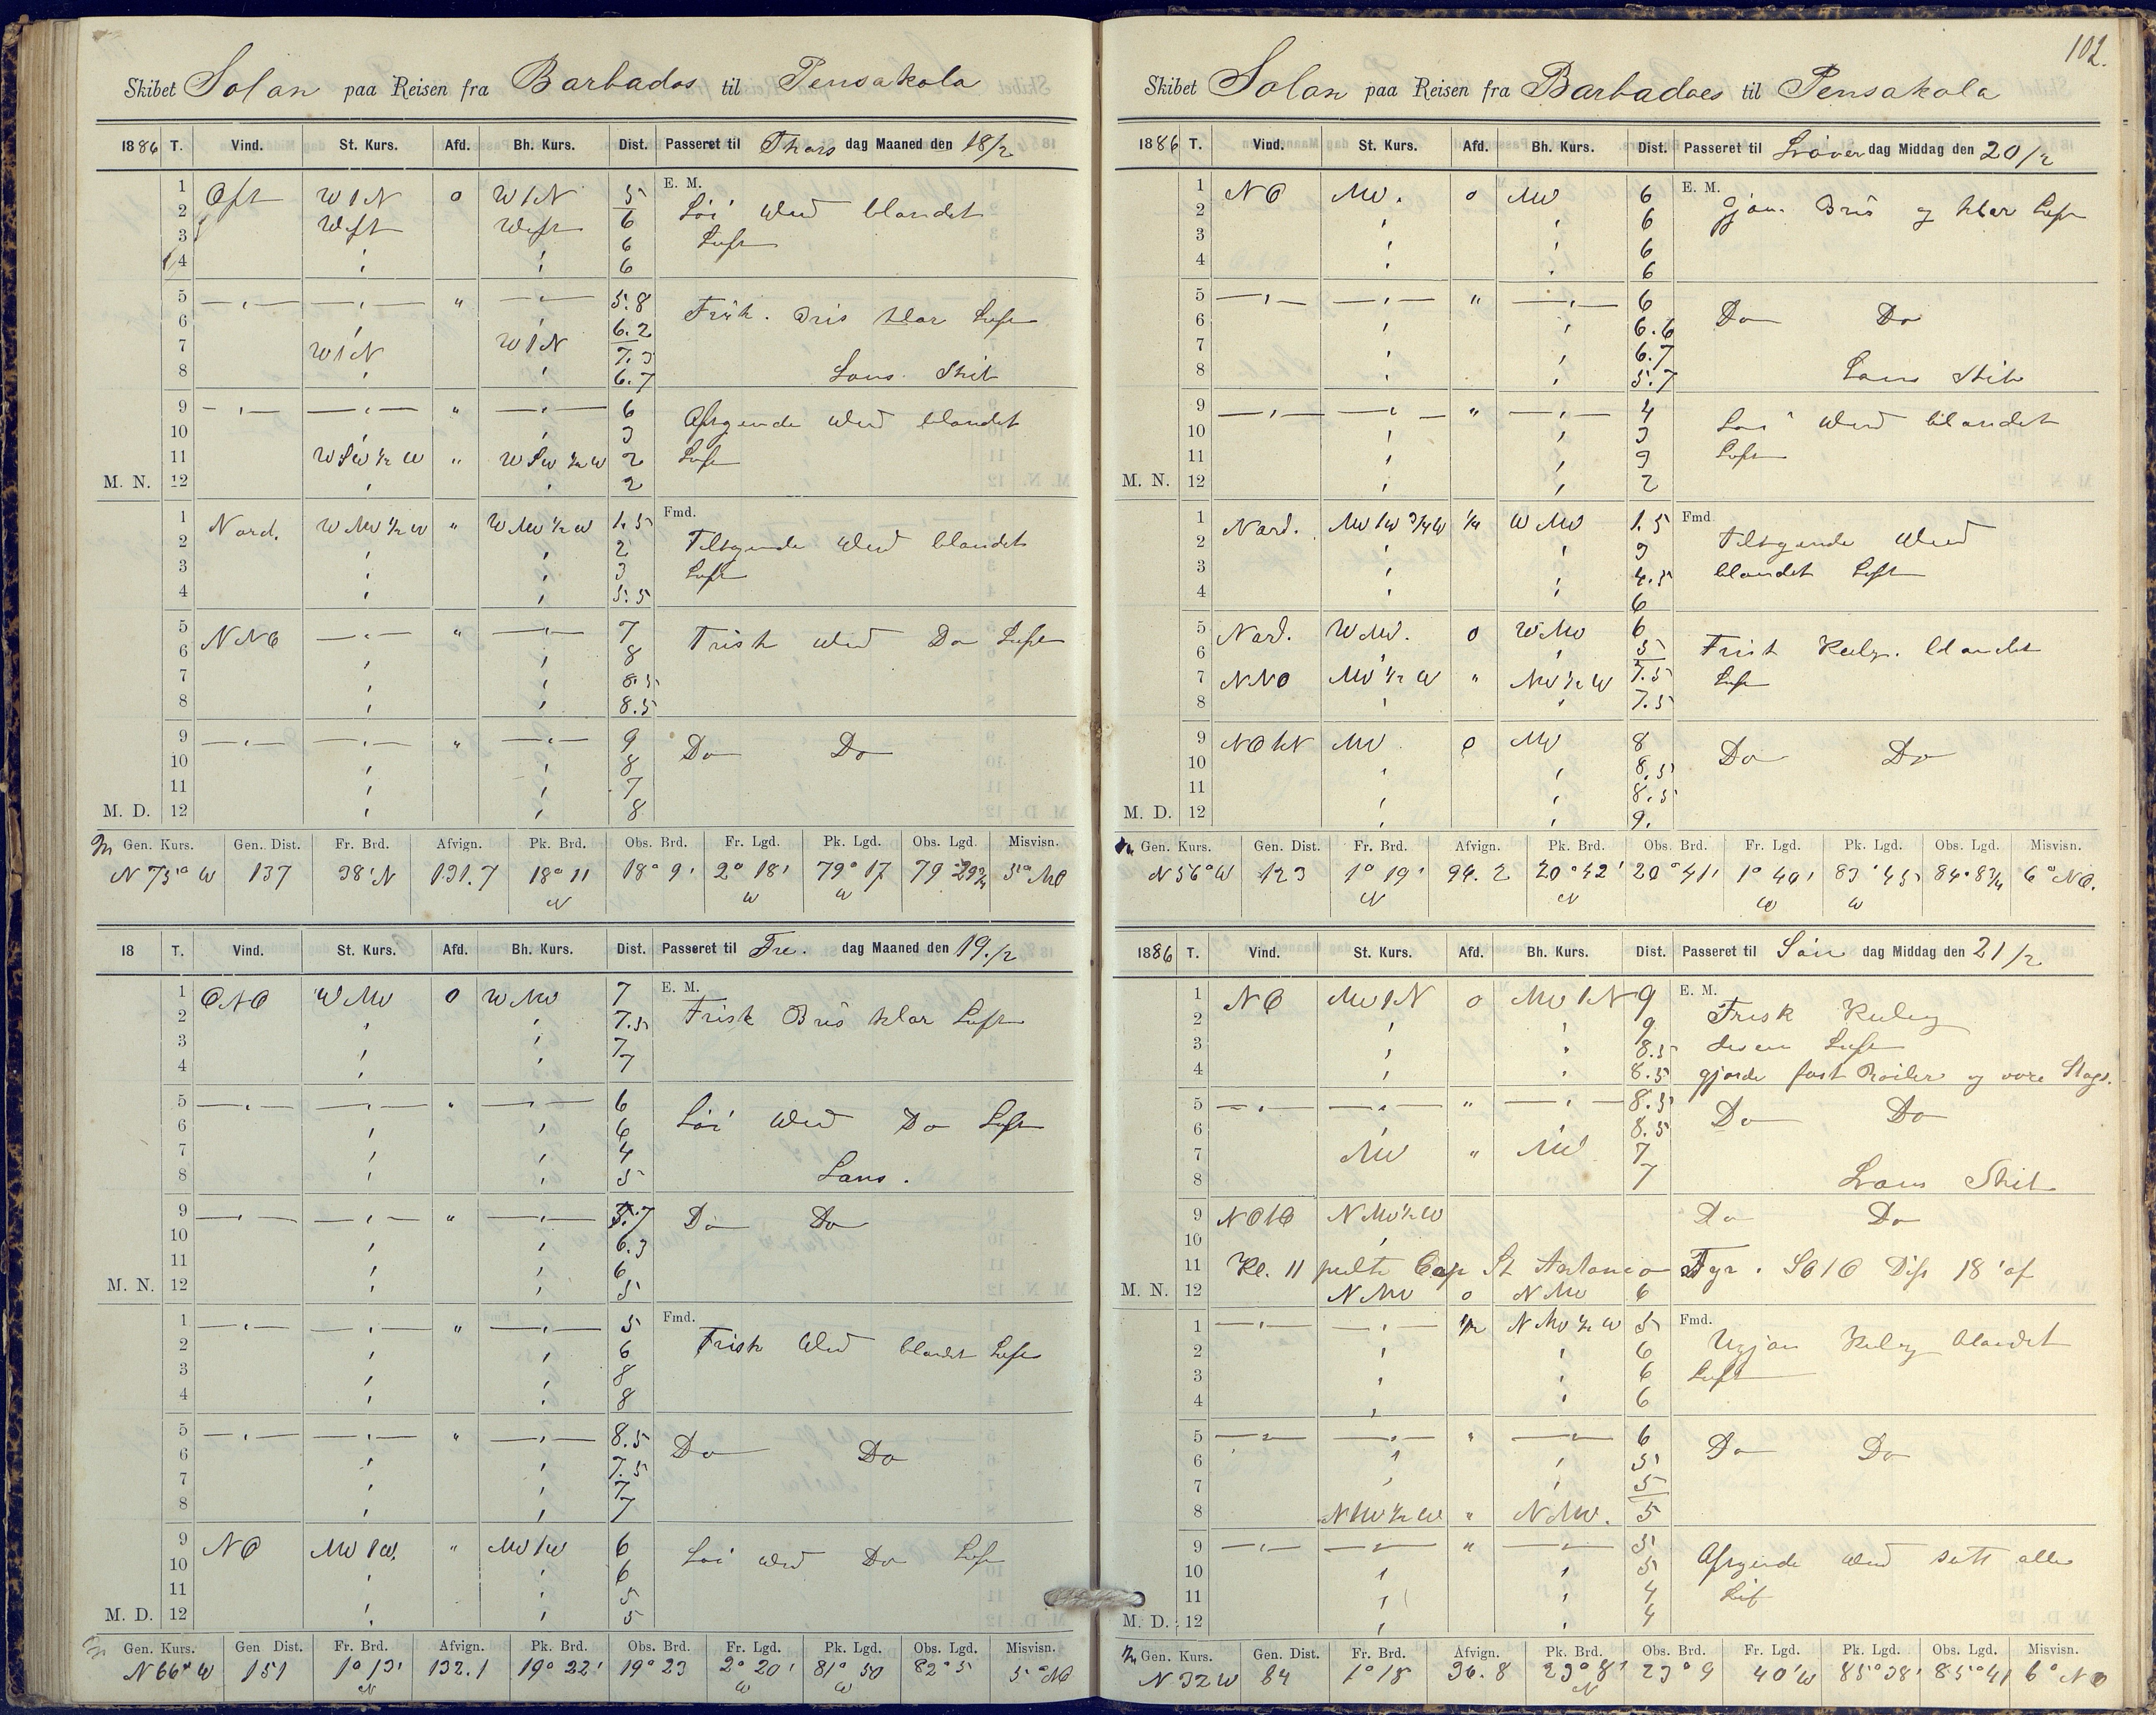 Skibet Solan paa Reisen fra Barbados til Pensakola
1886 T. Vind. St. Kurs. Afd. Bh. Kurs. Dist. Passeret til Thors dag Maaned den 18/2
1 Ost W 1 N o W 1 N 5 E. M.
2 West West 6 Löi Wind blandet
3 6 Luft
4 6
5 — — " — 5.8
6 6.2 Frisk. Bris klar Luft
7 W 1 N W 1 N 7.3
8 6.7 Lans. Skib
9 — — " — 6 Aftagende Wind blandet
10 3
11 WSW ½ W " WSW ½ W 2 Luft
M. N. 12 2
1 Nord. WNW ½ W " WNW ½ W 1.5 Fmd.
2 2 Tiltagende Wind blandet
3 3 Luft
4 5.5
5 NNO — " — 7 Frisk Wind Do Luft
6 8
7 8.5
8 8.5
9 — — " — 9 Do Do
10 8
11 7
M. D. 12 8
Gen. Kurs. Gen. Dist. Fr. Brd. Afvign. Pk. Brd. Obs. Brd. Fr. Lgd. Pk. Lgd. Obs. Lgd. Misvisn.
N 75° W 137 38' N 131.7 18° 11 N 18° 9' 2° 18' W 79° 17 W 79 29¾ 5° NO
18 T. Vind. St. Kurs. Afd. Bh. Kurs. Dist. Passeret til Fre. dag Maaned den 19./2
1 ONO WNW o WNW 7 E. M.
2 7.5 Frisk Bris klar Luft
3 7
4 7
5 — — " — 6
6 6 Löi Wind Do Luft
7 4
8 5 Lans.
9 — — " — 5.7 Do Do
10 6.3
11 6
M. N. 12 5
1 — — " — 5 Fmd.
2 6 Frisk Wind blandet Luft
3 8
4 8
5 — — " — 8.5
6 7.5 Do Do
7 7
8 7
9 NO NW 1 W. " NW 1 W 6
10 6 Löi Wind Do Luft
11 5
M. D. 12 5
Gen. Kurs. Gen Dist. Fr. Brd. Afvign. Pk. Brd. Obs. Brd. Fr. Lgd. Pk. Lgd. Obs. Lgd. Misvisn.
N 66° W 151 1° 13' N 132.1 19° 22' 19° 23 2° 20' W 81° 50 W 82° 5 5° NO
102.
Skibet Solan paa Reisen fra Barbadoes til Pensakola
1886 T. Vind. St. Kurs. Afd. Bh. Kurs. Dist. Passeret til Löver dag Middag den 20/2
1 NO NW. o NW 6 E. M.
2 6 gjön. Bris og klar Luft
3 6
4 6
5 — — " — 6
6 6.6 Do Do
7 6.7
8 5.7 Lans Skib
9 — — " — 4
10 3 Löi Wind blandet
11 3 Luft
M. N. 12 2
1 Nord. NW 1 W ¾ W ¼ WNW 1.5 Fmd
2 3 Tiltagende Wind
3 4.5 blandet Luft
4 6
5 Nord. WNW. o WNW 6
6 5 Frisk Kuling. blandet
7 NNO NW ½ W " NW ½ W 7.5 Luft
8 7.5
9 NO h N NW o NW 8
10 8.5 Do Do
11 8.5
M. D. 12 9.
Gen. Kurs. Gen. Dist. Fr. Brd. Afvign. Pk. Brd. Obs. Brd. Fr. Lgd. Pk. Lgd. Obs. Lgd. Misvisn.
N 56° W 123 1° 19' N 94.2 20° 42' N 20° 41' 1° 40' W 83° 45 W 84° 8¾ 6° NO.
1886 T. Vind. St. Kurs. Afd. Bh. Kurs. Dist. Passeret til Sön dag Middag den 21/2
1 NO NW 1 N o NW 1 N 9 E. M.
2 9 Frisk Kuling
3 8.5 disen Luft
4 8.5 gjorde fast Röiler og övre Stags.
5 — — " — 8.5 Do Do
6 8.5
7 NW " NW 7
8 7 Lans Skib
9 NO 1 O NNW ½ W Do Do
10
11 Kl. 11 peilte Cap St Antonio Fyr. SO 1 O Dist 18' af
M. N. 12 NNW o NNW 6
1 — — ½ NNW ½ W 5 Fmd.
2 6 Ugjön Kuling blandet
3 6 Luft
4 6
5 — — " — 6
6 5 Do Do
7 5
8 NNW ½ W " NNW. 5
9 — — " — 5
10 5 Aftagende Wind sett alle
11 4
M. D. 12 4
Gen. Kurs. Gen. Dist. Fr. Brd. Afvign. Pk. Brd. Obs. Brd. Fr. Lgd. Pk. Lgd. Obs. Lgd. Misvisn.
N 32 W 84 1° 18 36.8 23° 8' N 23° 9 40' W 85° 38' 85° 41 6° NO